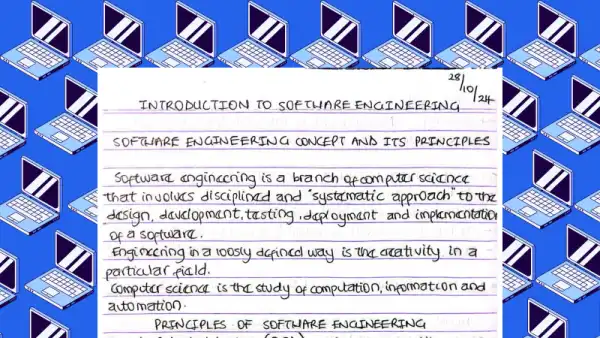 28/10/24
INTRODUCTION TO SOFTWARE ENGINEERING
SOFTWARE ENGINEERING CONCEPT AND ITS PRINCIPLES
Software engineering is a branch of computer science
that involves disciplined and "systematic approach" to the
design, development, testing, deployment and implementation
of a software.
Engineering in a loosly defined way is the creativity in a
particular field.
Computer science is the study of computation, information and
automation.
PRINCIPLES OF SOFTWARE ENGINEERING